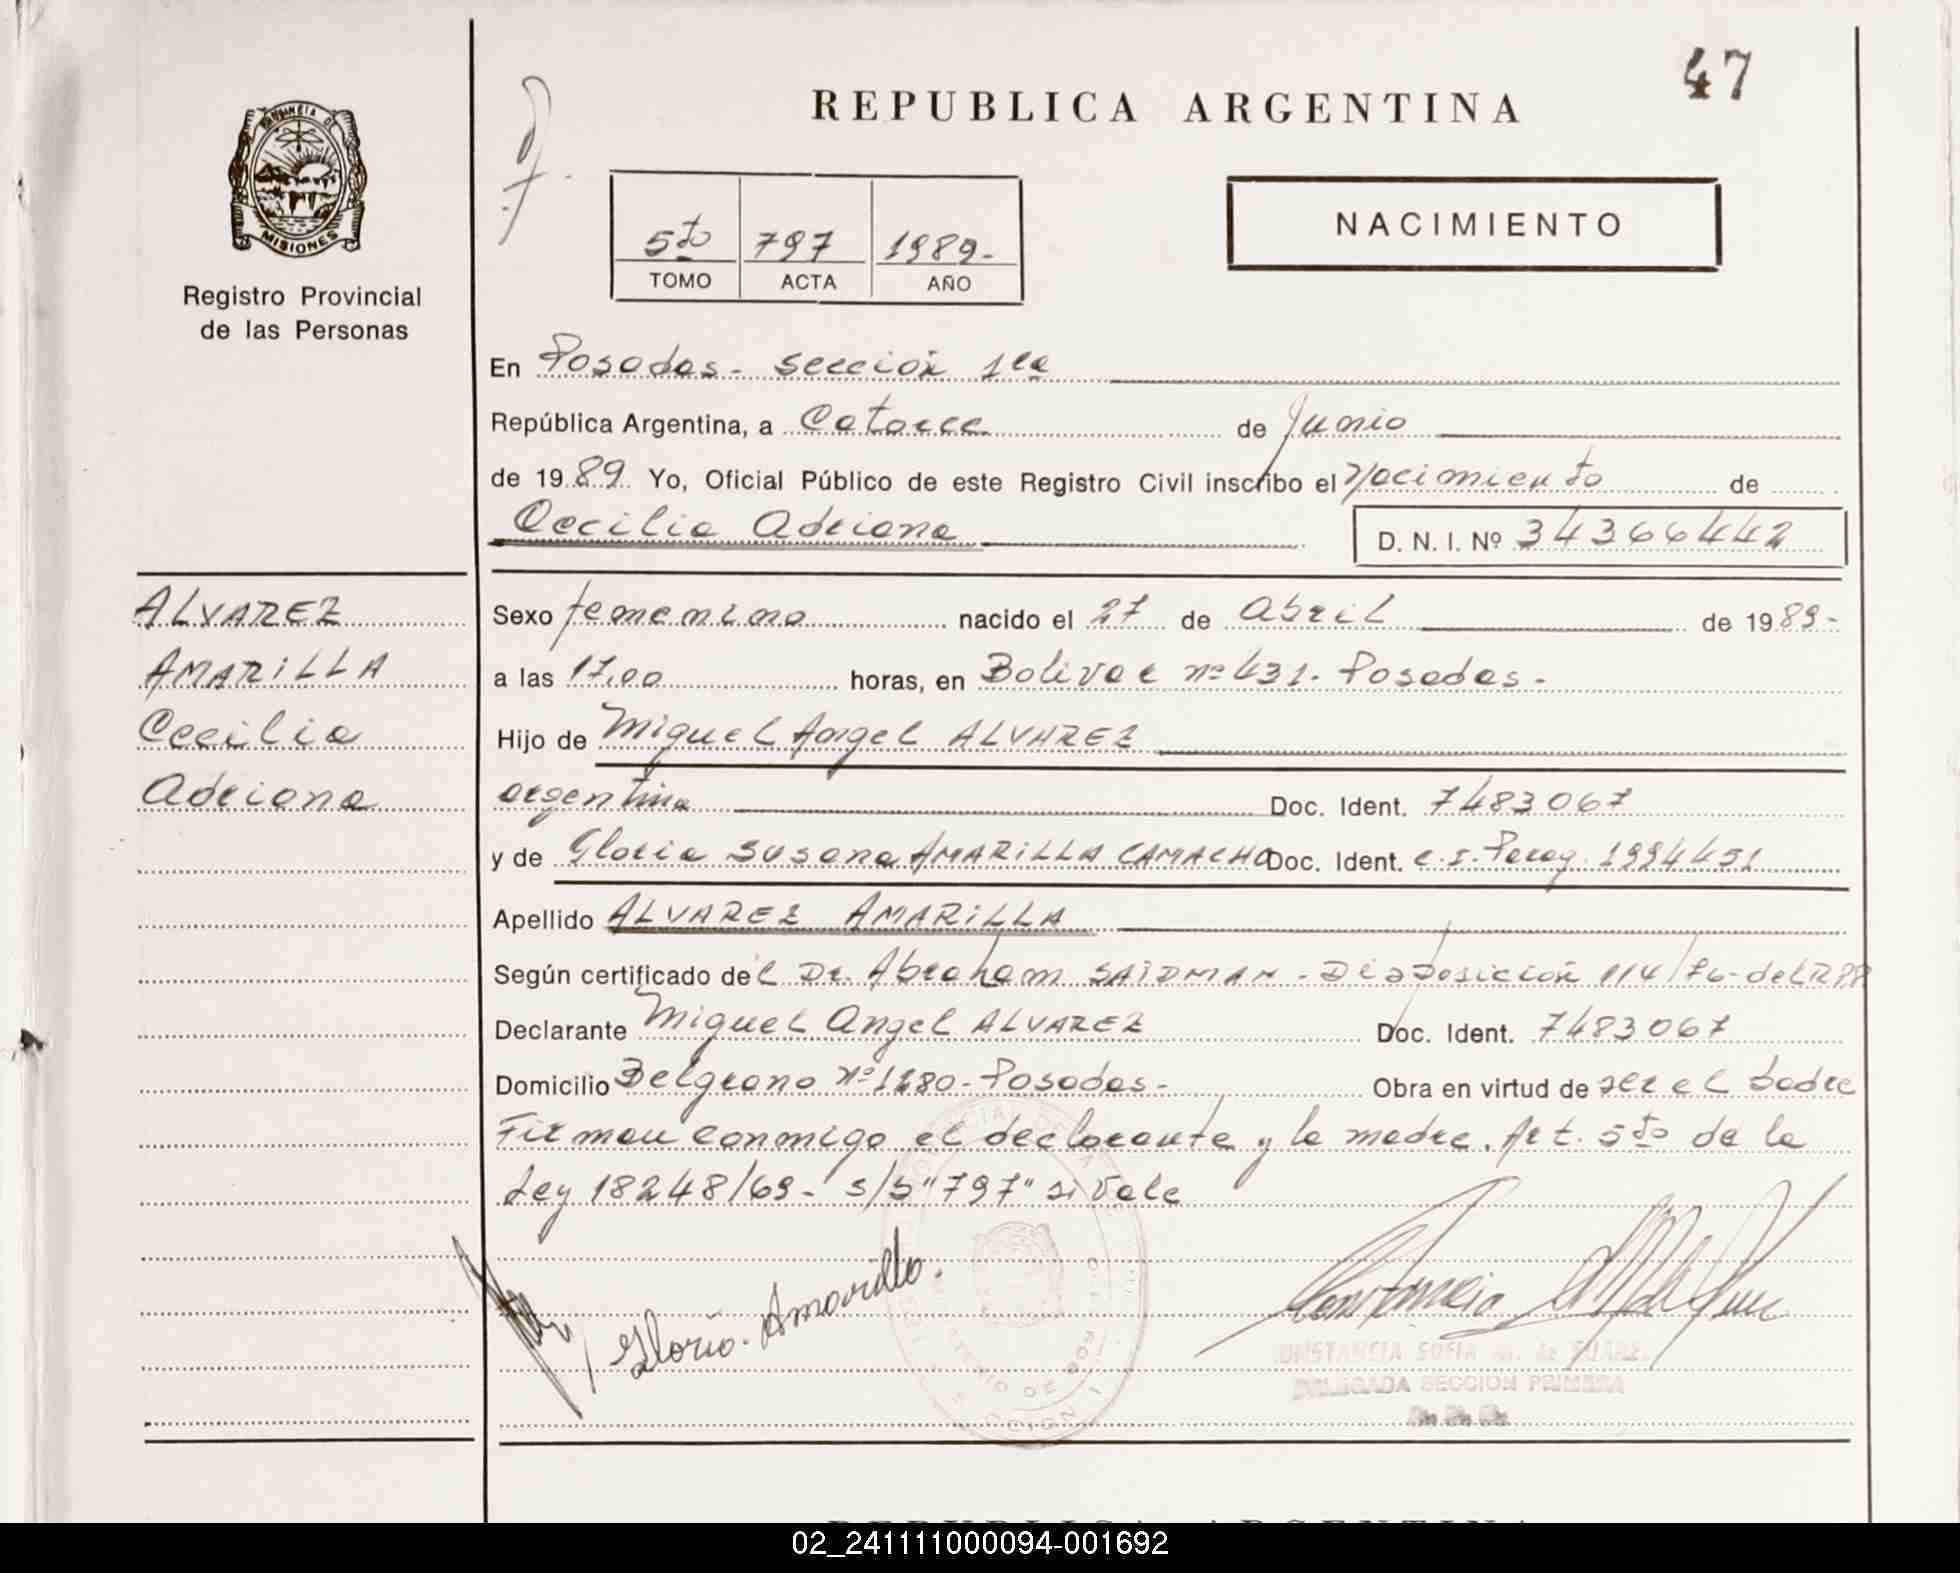 47
REPUBLICA ARGENTINA
PROVINCIA DE
MISIONES
Registro Provincial
de las Personas
NACIMIENTO
5to 797 1989-
TOMO ACTA AÑO
En Posadas - Sección 1ra
República Argentina, a Catorce de Junio
de 1989 Yo, Oficial Público de este Registro Civil inscribo el Nacimiento de
Cecilia Adriana D. N. I. Nº 34366442
ALVAREZ
AMARILLA
Cecilia
Adriana
Sexo femenino nacido el 27 de Abril de 1989-
a las 17,00 horas, en Bolivar nº 431. Posadas -
Hijo de Miguel Angel ALVAREZ
argentina Doc. Ident. 7483067
y de Gloria Susana AMARILLA CAMACHO Doc. Ident. c.i. Parag. 1994451
Apellido ALVAREZ AMARILLA
Según certificado del Dr. Abraham SAIDMAN - Disposición 114/76- del RPP
Declarante Miguel Angel ALVAREZ Doc. Ident. 7483067
Domicilio Belgrano Nº 1180- Posadas - Obra en virtud de ser el padre
Firman conmigo el declarante y la madre. Art. 5to de la
Ley 18248/69- s/b "797" si Vale
Gloria. Amarilla.
CONSTANCIA SOFIA M. de SUAREZ
DELEGADA SECCION PRIMERA
02_241111000094-001692